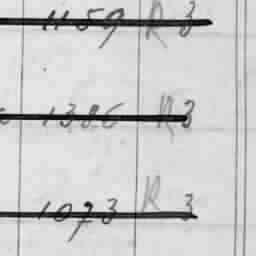 1159 R 3
1386 R 3
1073 R 3